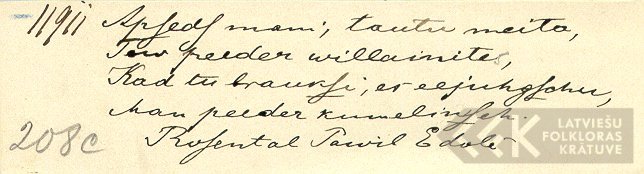 11911
Apsedf mani, tautu meita,
Tew peeder willainites,
Kad tu brauksi, es eejuhgschu,
Man peeder kumelinsch.
208c
Rosental Pawil Edole
LATVIEŠU
FOLKLORAS
KRĀTUVE